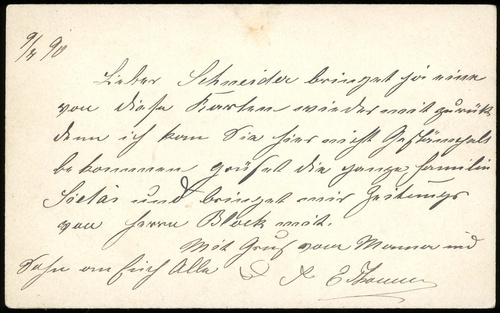 9/4 90
Lieber Schneider bringet ja eine
von diese Karten wieder mit zurük
denn ich kan Sie hier nicht Gestämpelt
bekommen grüßet die ganze Familie
Sietas und bringet mir Zeitungs
von Herrn Block mit.
Mit Gruß von Mama und
Sohn an Euch Alle